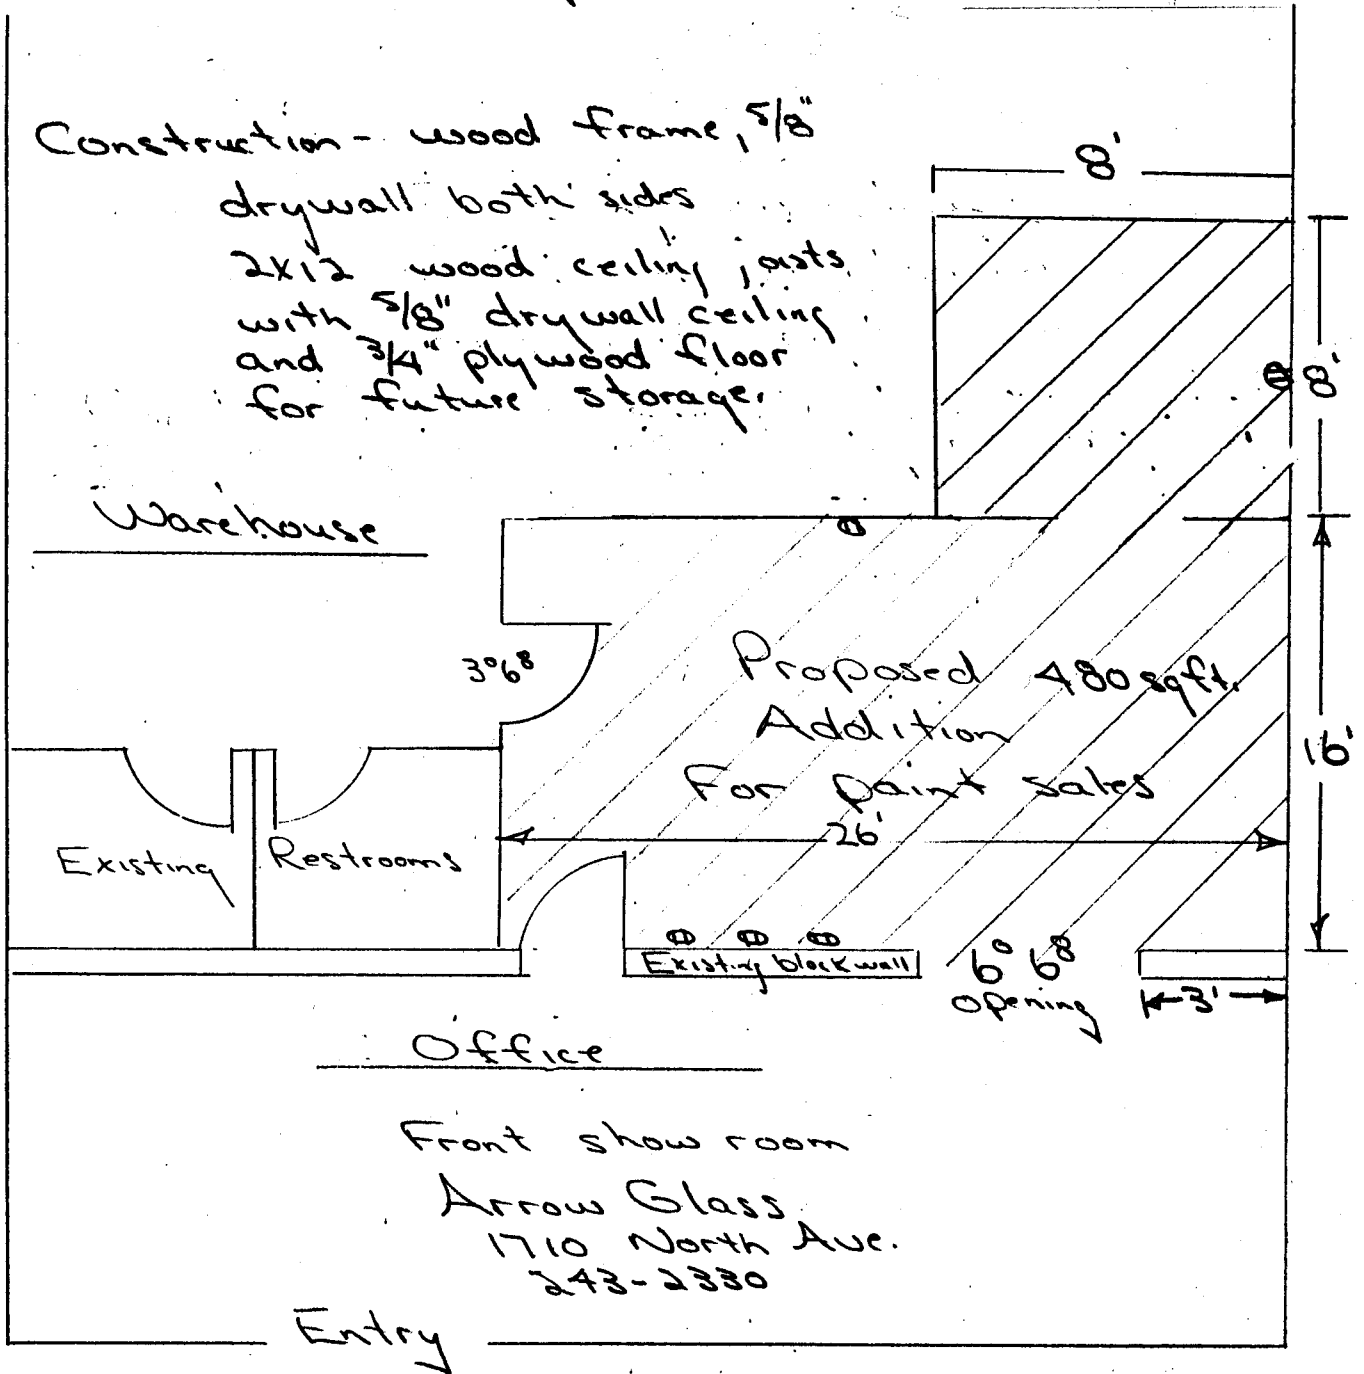 Construction - wood frame, 5/8"
drywall both sides
2x12 wood ceiling joists
with 5/8" drywall ceiling
and 3/4" plywood floor
for future storage.
8'
8'
Warehouse
3⁰6⁸
Proposed 480 sq ft.
Addition
For paint sales
16'
26'
Existing Restrooms
Existing block wall
6⁰ 6⁸
opening
3'
Office
Front show room
Arrow Glass
1710 North Ave.
243-2330
Entry